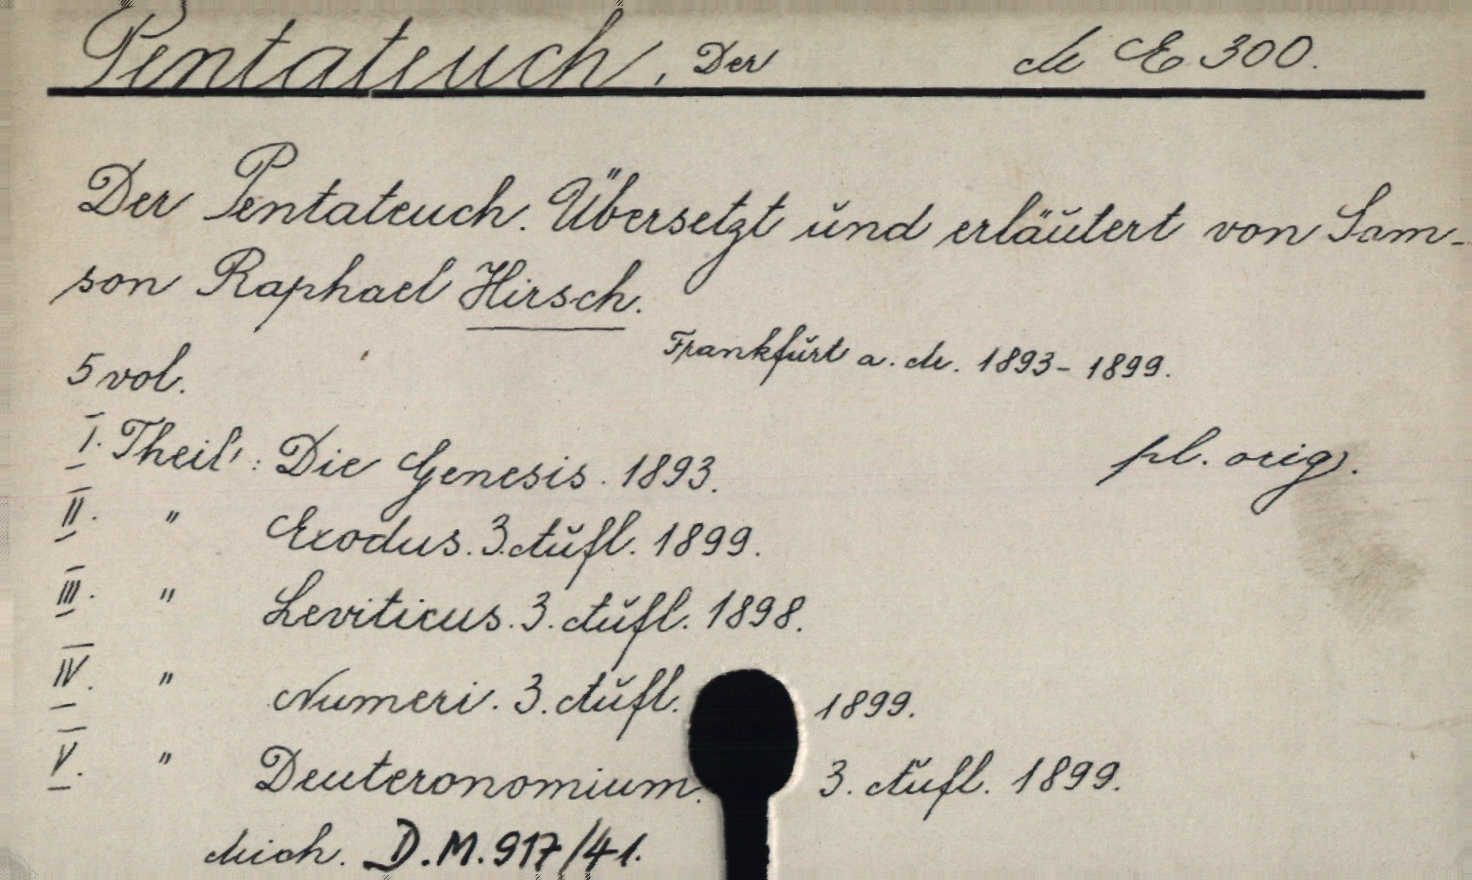 Pentateuch, Der M E 300.
Der Pentateuch. Übersetzt und erläutert von Sam-
son Raphael Hirsch.
Frankfurt a. M. 1893-1899.
5 vol.
I. Theil: Die Genesis. 1893. pl. orig.
II. " Exodus. 3. Aufl. 1899.
III. " Leviticus. 3. Aufl. 1898.
IV. " Numeri. 3. Aufl. 1899.
V. " Deuteronomium. 3. Aufl. 1899.
Mich. D.M.917/41.